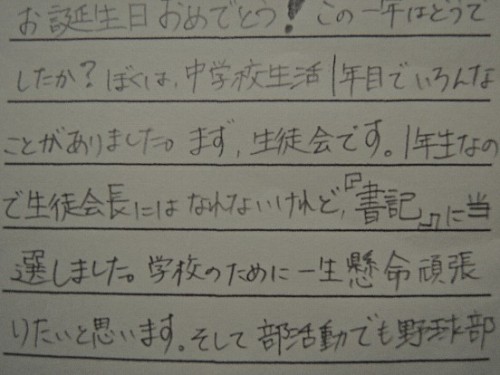 お誕生日おめでとう！この一年はどうで
したか？ぼくは、中学校生活1年目でいろんな
ことがありました。まず、生徒会です。1年生なの
で生徒会長にはなれないけれど、『書記』に当
選しました。学校のために一生懸命頑張
りたいと思います。そして部活動でも野球部